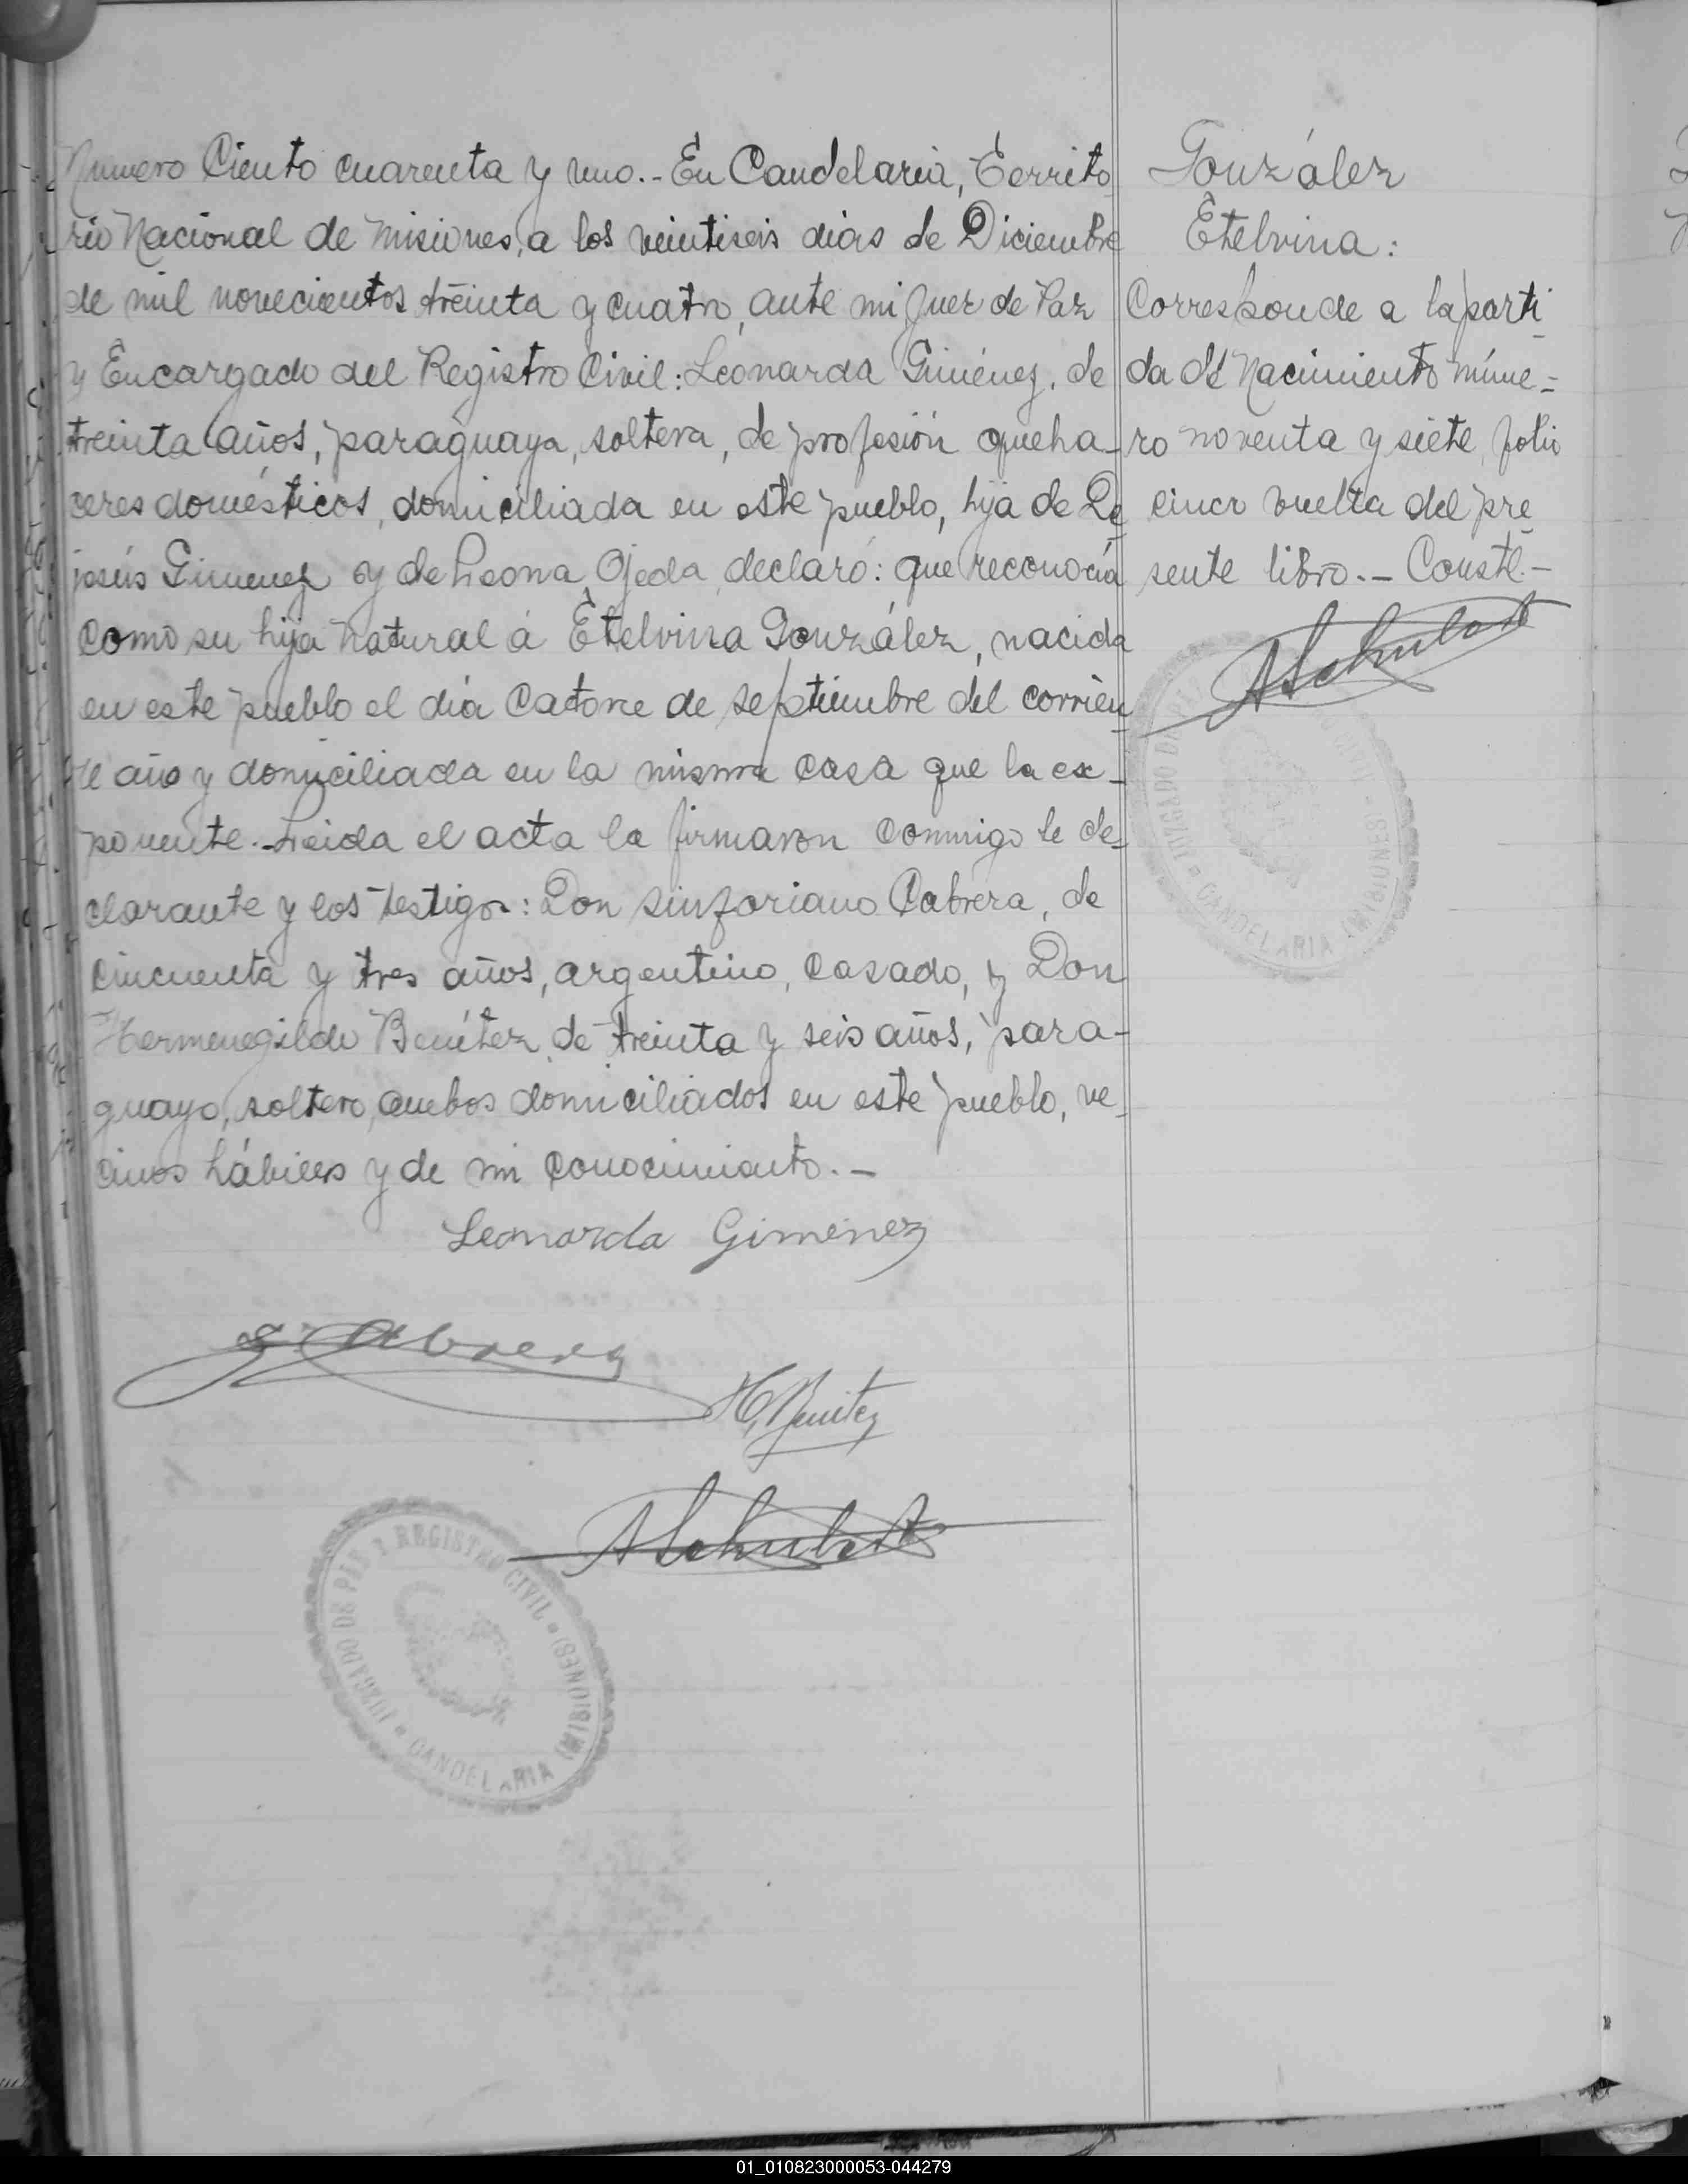 Numero Ciento cuarenta y uno.- En Candelaria, Territo
rio Nacional de Misiones, a los veintiseis dias de Diciembre
de mil novecientos treinta y cuatro, ante mi Juez de Paz
y Encargado del Registro Civil: Leonarda Giménez, de
treinta años, paraguaya, soltera, de profesión queha-
ceres domésticos, domiciliada en este pueblo, hija de De
jesús Gimenez y de Leona Ojeda, declaró: que reconocía
como su hija natural á Etelvina González, nacida
en este pueblo el día catorce de septiembre del corrien
te año y domiciliada en la misma casa que la ex-
ponente.- Leida el acta la firmaron conmigo le de-
clarante y los testigos: Don Sinforiano Cabrera, de
cincuenta y tres años, argentino, casado, y Don
Hermenegildo Benítez, de treinta y seis años, para-
guayo, soltero, ambos domiciliados en este pueblo, ve-
cinos hábiles y de mi conocimiento.-
Leonarda Gimenez
S. Cabrera
H. Benitez
A Schubert
JUZGADO DE PAZ Y REGISTRO CIVIL
CANDELARIA (MISIONES)
González
Etelvina:
Corresponde a la parti
da de Nacimiento núme-
ro noventa y siete, folio
cinco vuelta del pre
sente libro.- Conste.-
A Schubert
JUZGADO DE PAZ
CIVIL
CANDELARIA (MISIONES)
01_010823000053-044279